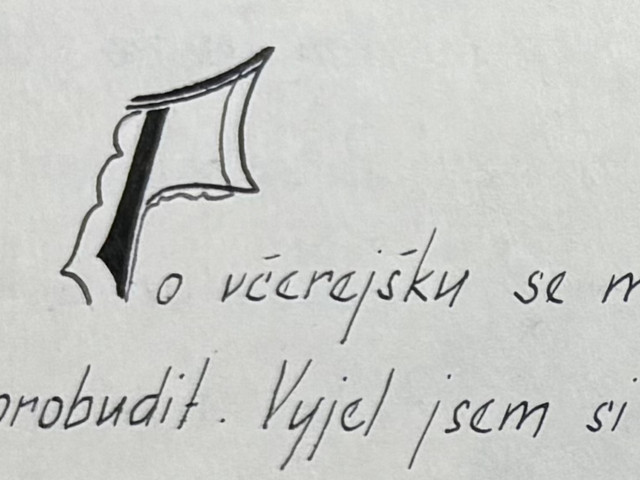 Po včerejšku se m
probudit. Vyjel jsem si